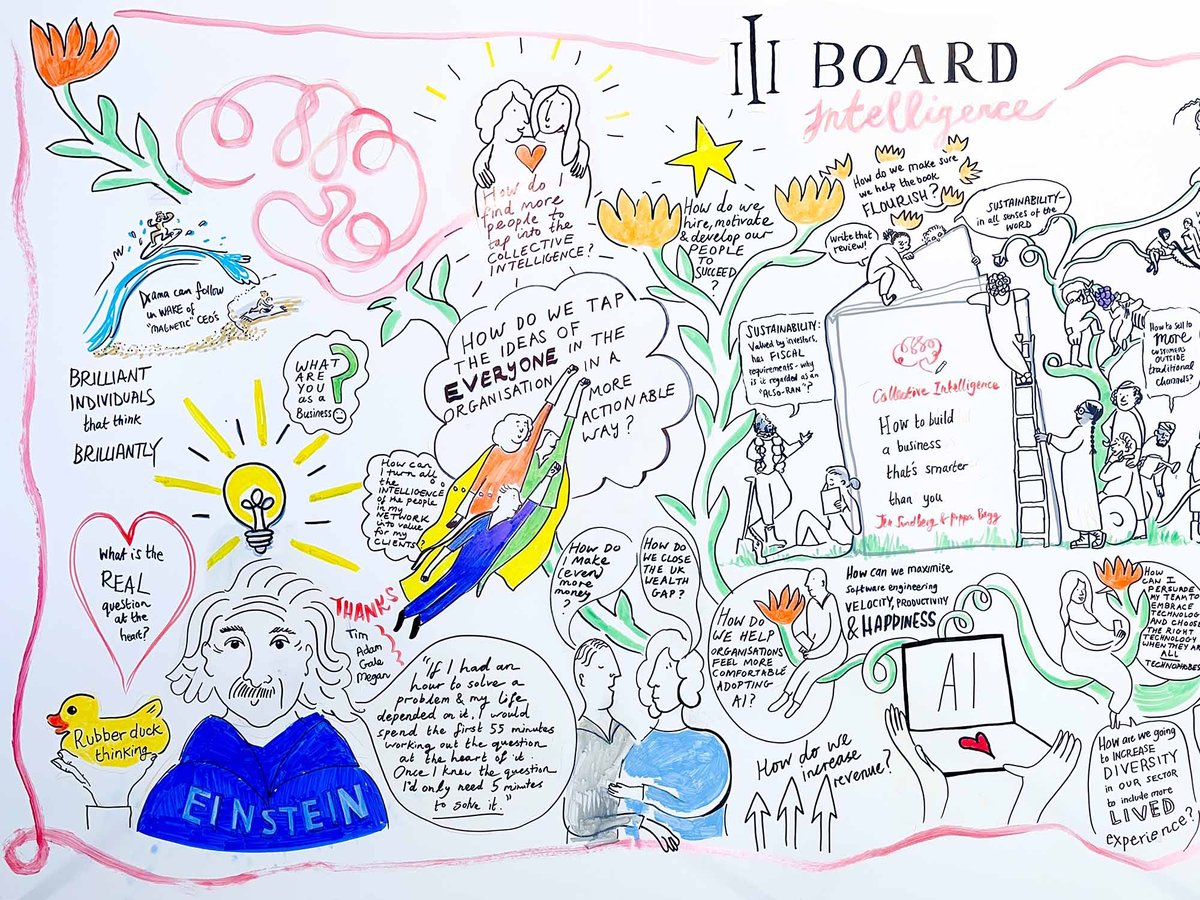 BOARD
Intelligence
How do I
find more
people to
tap into the
COLLECTIVE
INTELLIGENCE?
How do we
hire, motivate
& develop our
PEOPLE
TO
SUCCEED
?
How do we make sure
we help the book
FLOURISH?
Write that
review!
SUSTAINABILITY-
in all senses of the
WORD
Drama can follow
in WAKE of
"MAGNETIC" CEO's
BRILLIANT
INDIVIDUALS
that think
BRILLIANTLY
WHAT
ARE
YOU
as a
Business
?
HOW DO WE TAP
THE IDEAS OF
EVERYONE IN THE
ORGANISATION IN A
MORE
ACTIONABLE
WAY?
SUSTAINABILITY:
Valued by investors,
has FISCAL
requirements - why
is it regarded as an
"ALSO-RAN"?
Collective Intelligence
How to build
a business
that's smarter
than you
Jen Sundberg & Pippa Begg
How to sell to
MORE
CUSTOMERS
OUTSIDE
traditional
channels?
How can
I turn all
the
INTELLIGENCE
of the people
in my
NETWORK
into value
for my
CLIENTS?
What is the
REAL
question
at the
heart?
THANKS
Tim
Adam
Grale
Megan
Rubber duck
thinking
EINSTEIN
"If I had an
hour to solve a
problem & my life
depended on it, I would
spend the first 55 minutes
working out the question
at the heart of it.
Once I knew the question
I'd only need 5 minutes
to solve it."
How do
I make
(even)
more
money
?
HOW DO
WE CLOSE
THE UK
WEALTH
GAP?
HOW DO
WE HELP
ORGANISATIONS
FEEL MORE
COMFORTABLE
ADOPTING
AI?
How can we maximise
software engineering
VELOCITY, PRODUCTIVITY
& HAPPINESS
HOW
CAN I
PERSUADE
MY TEAM TO
EMBRACE
TECHNOLOGY
AND CHOOSE
THE RIGHT
TECHNOLOGY
WHEN THEY ARE
ALL
TECHNOPHOBES
AI
How do we
increase
revenue?
How are we going
to INCREASE
DIVERSITY
in OUR SECTOR
to include more
LIVED
experience?